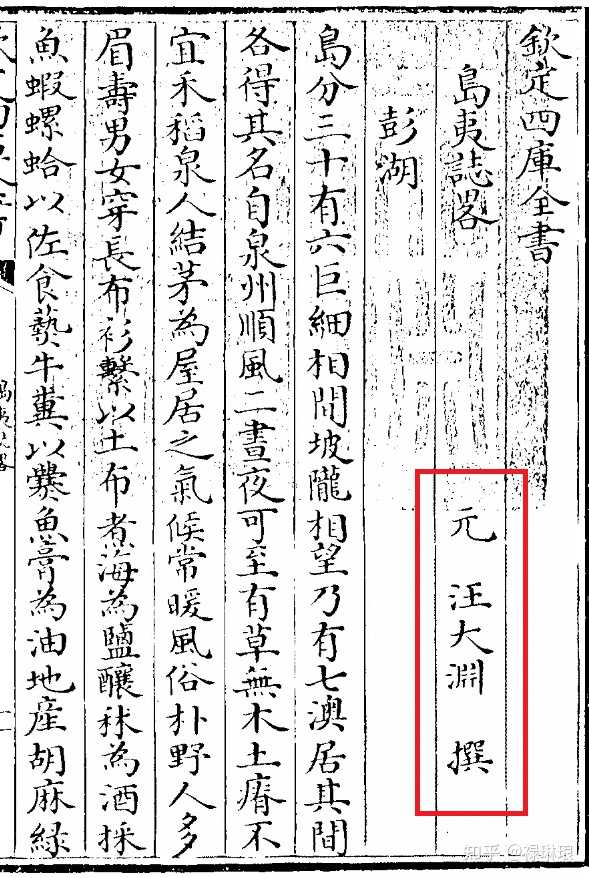 欽定四庫全書
島夷誌畧
元 汪大淵 撰
彭湖
島分三十有六巨細相間坡隴相望乃有七澳居其間
各得其名自泉州順風二晝夜可至有草無木土瘠不
宜禾稻泉人結茅為屋居之氣候常暖風俗朴野人多
眉壽男女穿長布衫繫以土布煮海為鹽釀秫為酒採
魚蝦螺蛤以佐食爇牛糞以爨魚膏為油地產胡麻綠
知乎 @禄琳琅